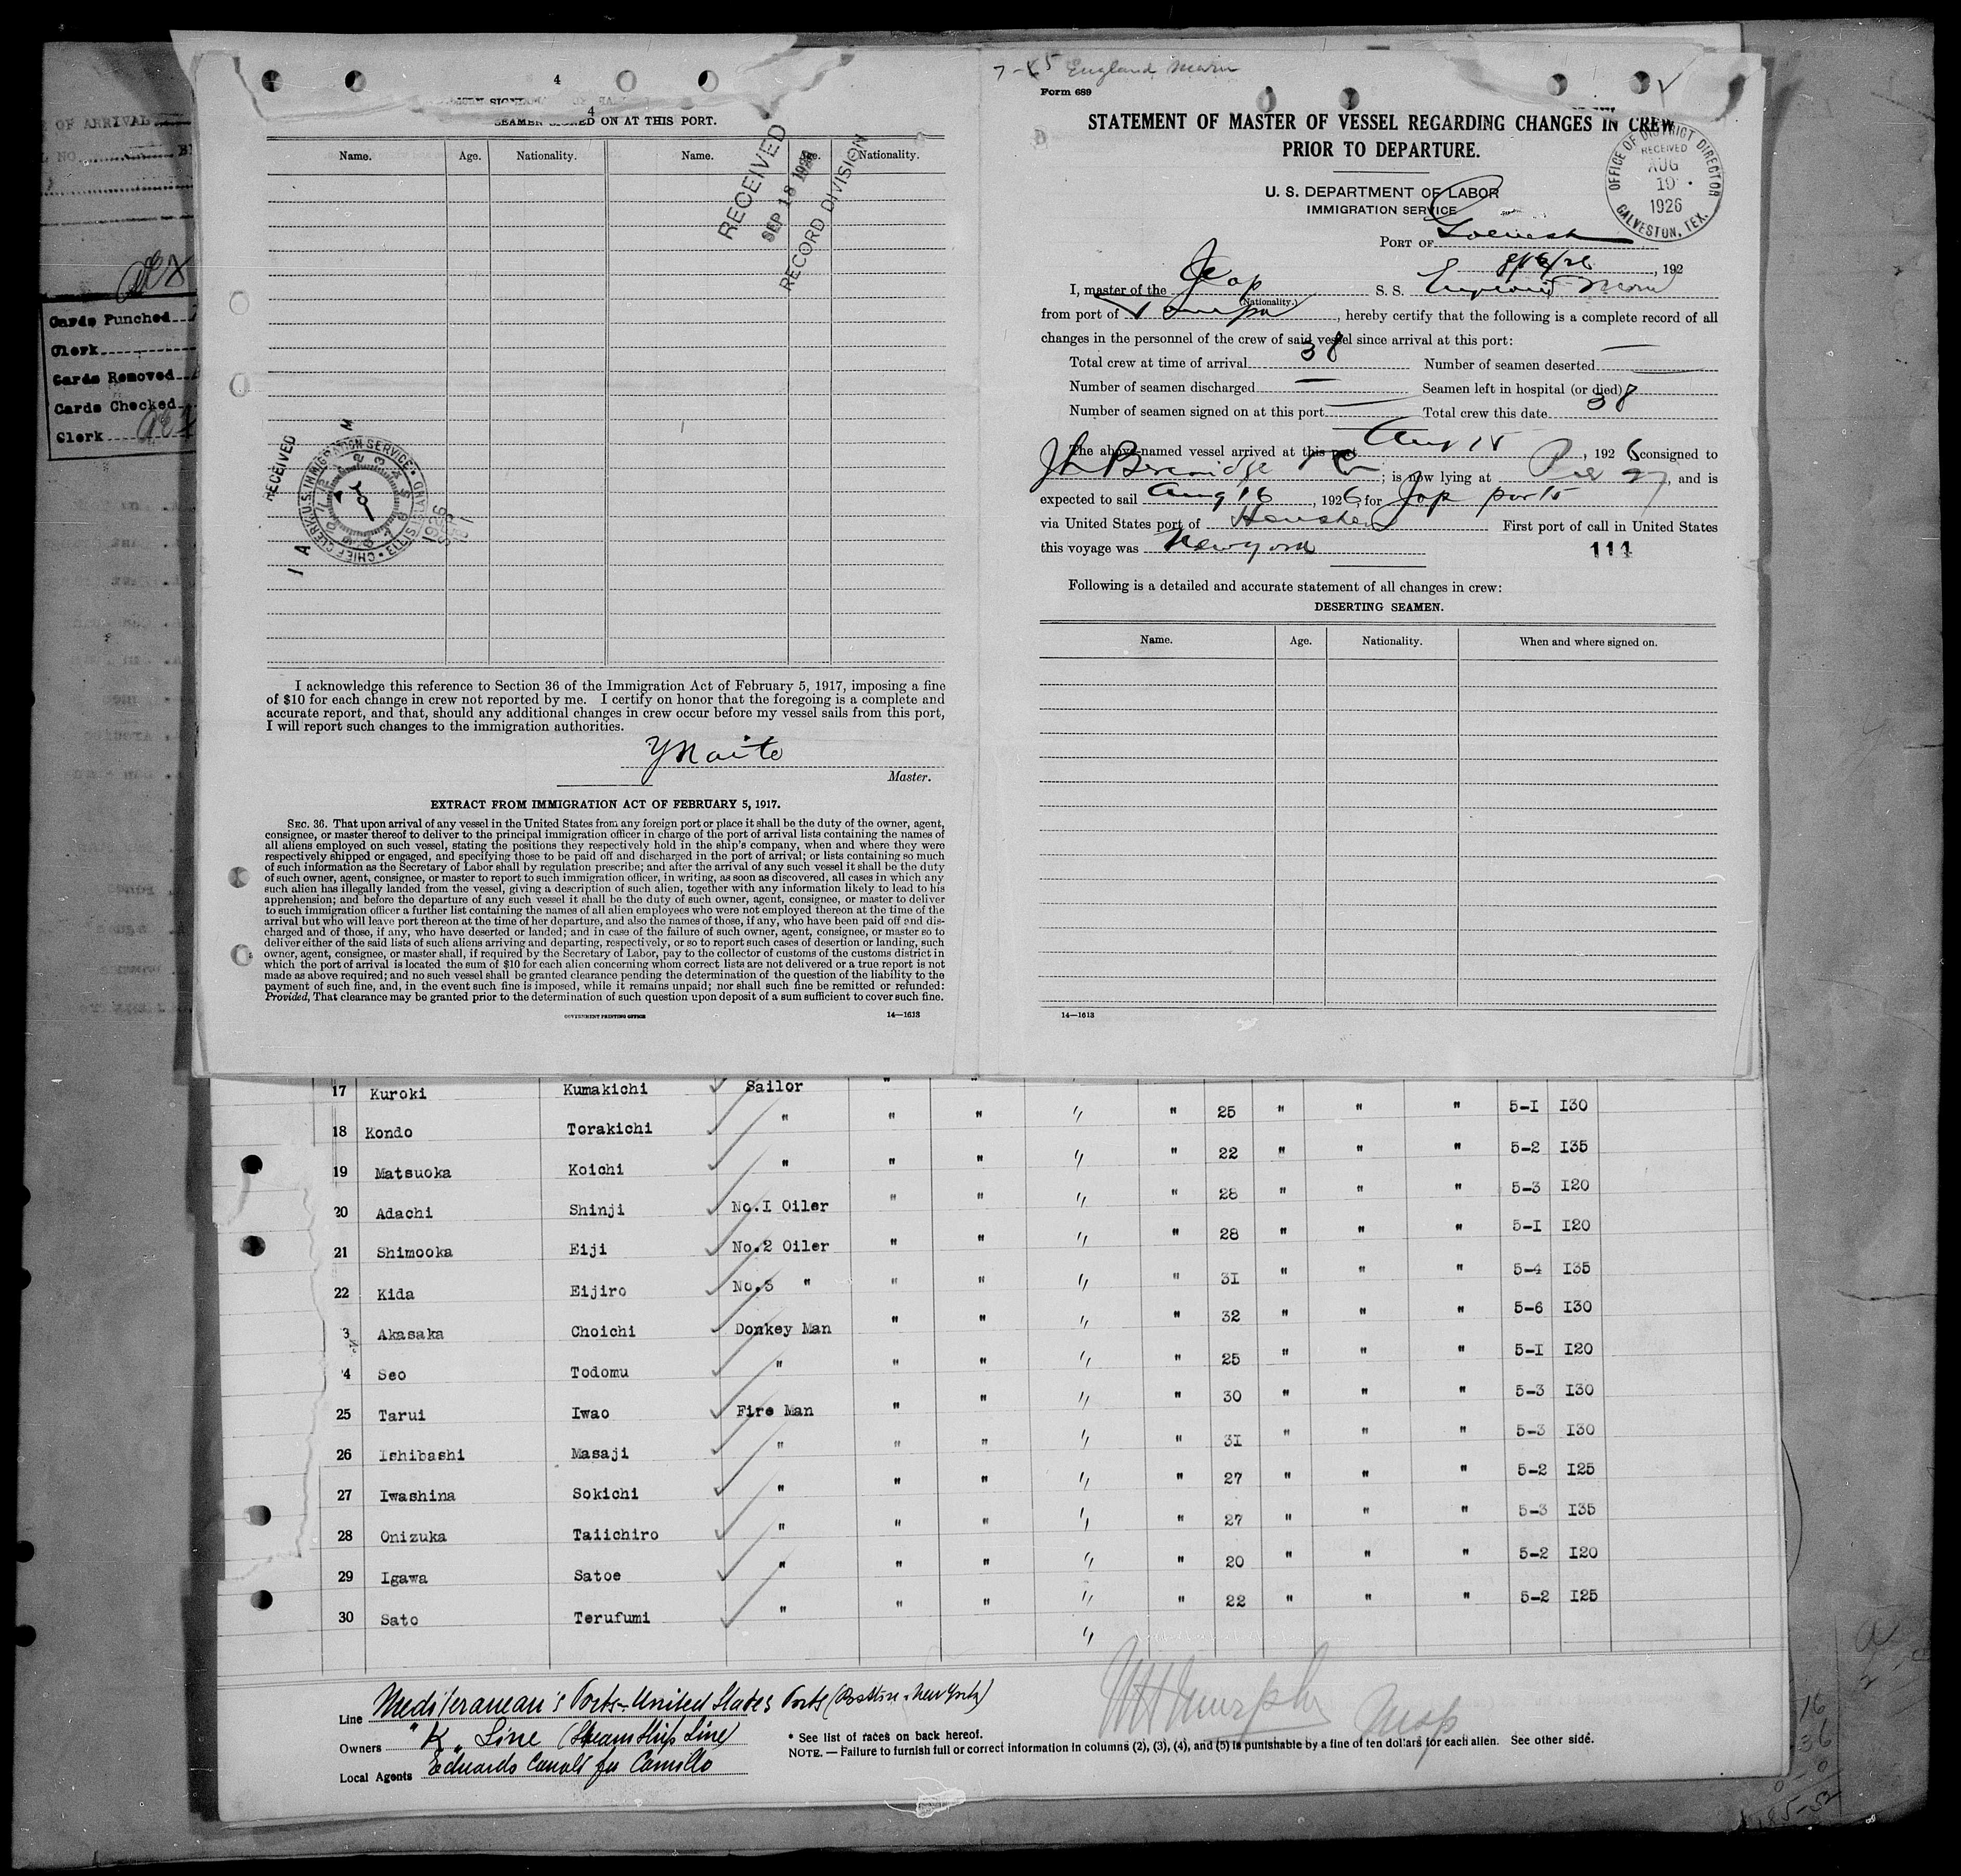 OF ARRIVAL
Cards Punched
Clerk
Cards Removed
Cards Checked
Clerk
4
4
SEAMEN SIGNED ON AT THIS PORT.
Name. Age. Nationality. Name. Age. Nationality.
RECEIVED
SEP 18 1926
RECORD DIVISION
RECEIVED
CHIEF CLERK U.S. IMMIGRATION SERVICE
1926
I acknowledge this reference to Section 36 of the Immigration Act of February 5, 1917, imposing a fine
of $10 for each change in crew not reported by me. I certify on honor that the foregoing is a complete and
accurate report, and that, should any additional changes in crew occur before my vessel sails from this port,
I will report such changes to the immigration authorities.
Y Naito
Master.
EXTRACT FROM IMMIGRATION ACT OF FEBRUARY 5, 1917.
SEC. 36. That upon arrival of any vessel in the United States from any foreign port or place it shall be the duty of the owner, agent,
consignee, or master thereof to deliver to the principal immigration officer in charge of the port of arrival lists containing the names of
all aliens employed on such vessel, stating the positions they respectively hold in the ship's company, when and where they were
respectively shipped or engaged, and specifying those to be paid off and discharged in the port of arrival; or lists containing so much
of such information as the Secretary of Labor shall by regulation prescribe; and after the arrival of any such vessel it shall be the duty
of such owner, agent, consignee, or master to report to such immigration officer, in writing, as soon as discovered, all cases in which any
such alien has illegally landed from the vessel, giving a description of such alien, together with any information likely to lead to his
apprehension; and before the departure of any such vessel it shall be the duty of such owner, agent, consignee, or master to deliver
to such immigration officer a further list containing the names of all alien employees who were not employed thereon at the time of the
arrival but who will leave port thereon at the time of her departure, and also the names of those, if any, who have been paid off and dis-
charged and of those, if any, who have deserted or landed; and in case of the failure of such owner, agent, consignee, or master so to
deliver either of the said lists of such aliens arriving and departing, respectively, or so to report such cases of desertion or landing, such
owner, agent, consignee, or master shall, if required by the Secretary of Labor, pay to the collector of customs of the customs district in
which the port of arrival is located the sum of $10 for each alien concerning whom correct lists are not delivered or a true report is not
made as above required; and no such vessel shall be granted clearance pending the determination of the question of the liability to the
payment of such fine, and, in the event such fine is imposed, while it remains unpaid; nor shall such fine be remitted or refunded:
Provided, That clearance may be granted prior to the determination of such question upon deposit of a sum sufficient to cover such fine.
GOVERNMENT PRINTING OFFICE 14—1613
England Maru
Form 689
STATEMENT OF MASTER OF VESSEL REGARDING CHANGES IN CREW
PRIOR TO DEPARTURE.
OFFICE OF DISTRICT DIRECTOR
RECEIVED
AUG
19
1926
GALVESTON, TEX.
U. S. DEPARTMENT OF LABOR
IMMIGRATION SERVICE
PORT OF Galvest
, 192
I, master of the Jap S. S. England Maru
(Nationality.)
from port of Tampa, hereby certify that the following is a complete record of all
changes in the personnel of the crew of said vessel since arrival at this port:
Total crew at time of arrival 38 Number of seamen deserted —
Number of seamen discharged — Seamen left in hospital (or died)
Number of seamen signed on at this port — Total crew this date 38
The above-named vessel arrived at this port Aug 15, 1926 consigned to
; is now lying at Pier 27, and is
expected to sail Aug 16, 1926, for Jap ports
via United States port of Houston First port of call in United States
this voyage was New york 111
Following is a detailed and accurate statement of all changes in crew:
DESERTING SEAMEN.
Name. Age. Nationality. When and where signed on.
14—1613
17 Kuroki Kumakichi Sailor " " " " 25 " " " 5-I I30
18 Kondo Torakichi " " " " " 22 " " " 5-2 I35
19 Matsuoka Koichi " " " " " 28 " " " 5-3 I20
20 Adachi Shinji No.I Oiler " " " " 28 " " " 5-I I20
21 Shimooka Eiji No.2 Oiler " " " " 31 " " " 5-4 I35
22 Kida Eijiro No.3 " " " " " 32 " " " 5-6 I30
3 Akasaka Choichi Donkey Man " " " " 25 " " " 5-I I20
4 Seo Todomu " " " " " 30 " " " 5-3 I30
25 Tarui Iwao Fire Man " " " " 31 " " " 5-3 I30
26 Ishibashi Masaji " " " " " 27 " " " 5-2 I25
27 Iwashina Sokichi " " " " " 27 " " " 5-3 I35
28 Onizuka Taiichiro " " " " " 20 " " " 5-2 I20
29 Igawa Satoe " " " " " 22 " " " 5-2 I25
30 Sato Terufumi " " " "
Line Mediteranean's Ports-United States Ports (Boston-New York)
Owners "K" Line (Steam Ship Line)
Local Agents Eduardo Canali fu Camillo
* See list of races on back hereof.
NOTE. — Failure to furnish full or correct information in columns (2), (3), (4), and (5) is punishable by a fine of ten dollars for each alien. See other side.